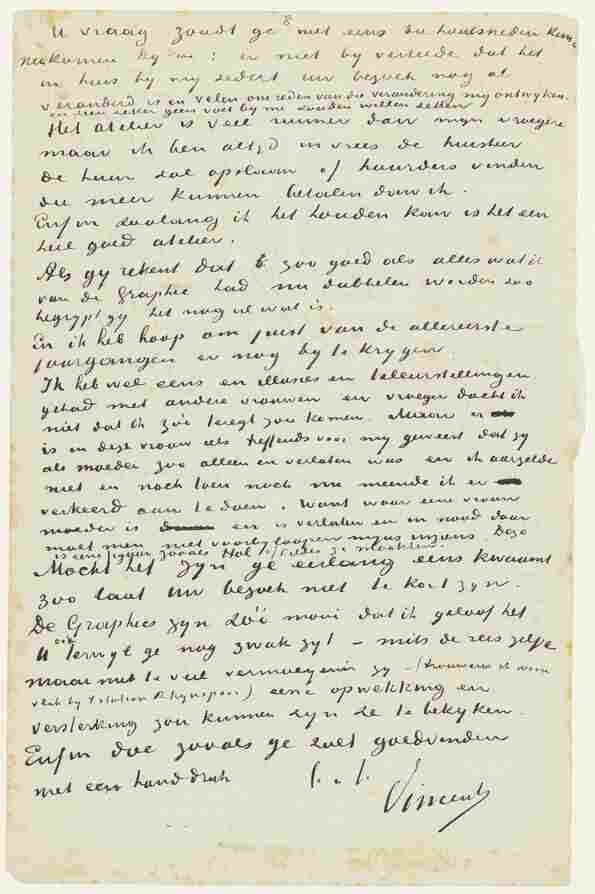 8
U vraag zoudt ge niet eens de houtsneden kun-
nen komen by : er niet by vertelde dat het
in huis by my sedert uw bezoek nog al
veranderd is en velen om reden van die verandering my ontwyken.
en zeer zeker geen voet by me zouden willen zetten
Het atelier is veel ruimer dan myn vroegere
maar ik ben altyd in vrees de huisheer
de huur zal opslaan of huurders vinden
die meer kunnen betalen dan ik.
Enfin zoolang ik het houden kan is het een
heel goed atelier.
Als gy rekent dat ik zoo goed als alles wat ik
van de Graphic had nu dubbelen worden zoo
begrypt gy het nog al wat is.
En ik heb hoop om juist van de allereerste
jaargangen er nog by te krygen.
Ik heb wel eens en illusies en teleurstellingen
gehad met andere vrouwen en vroeger dacht ik
niet dat ik zóó teregt zou komen. Maar er
is in deze vrouw iets treffends voor my geweest dat zy
als moeder zoo alleen en verlaten was en ik aarzelde
niet en noch toen noch nu meende ik er
verkeerd aan te doen. Want waar eene vrouw
moeder is en is verlaten en in nood daar
moet men niet voorby loopen myns inziens. Deze
is eene figuur zooals Hol of Fildes ze maakten.
Mocht het zyn ge eerlang eens kwaamt
zoo laat uw bezoek niet te kort zyn.
De Graphics zyn zóó mooi dat ik geloof het
U ook terwyl ge nog zwak zyt – mits de reis zelve
maar niet te veel vermoeyenis zy – (trouwens ik woon
vlak by Station Rhynspoor) eene opwekking en
versterking zou kunnen zyn ze te bekyken.
Enfin doe zooals ge zult goedvinden
met een handdruk t. à t.
Vincent